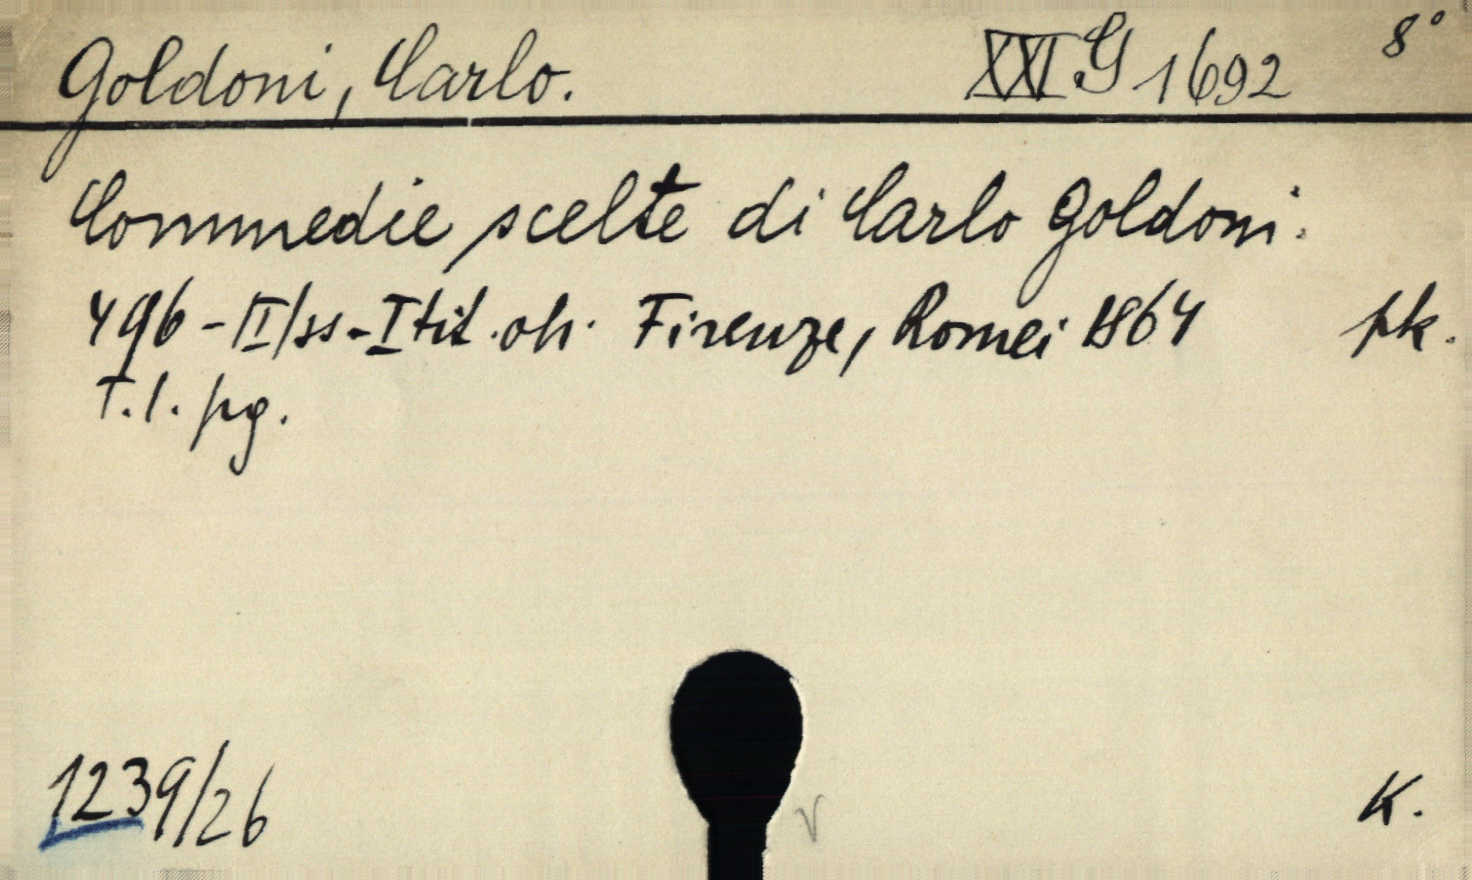 Goldoni, Carlo. XXI G 1692 8°
Commedie scelte di Carlo Goldoni.
496 - II/ss - I tit. oh. Firenze, Romei 1864 pk.
T. l. pg.
1239/26 K.